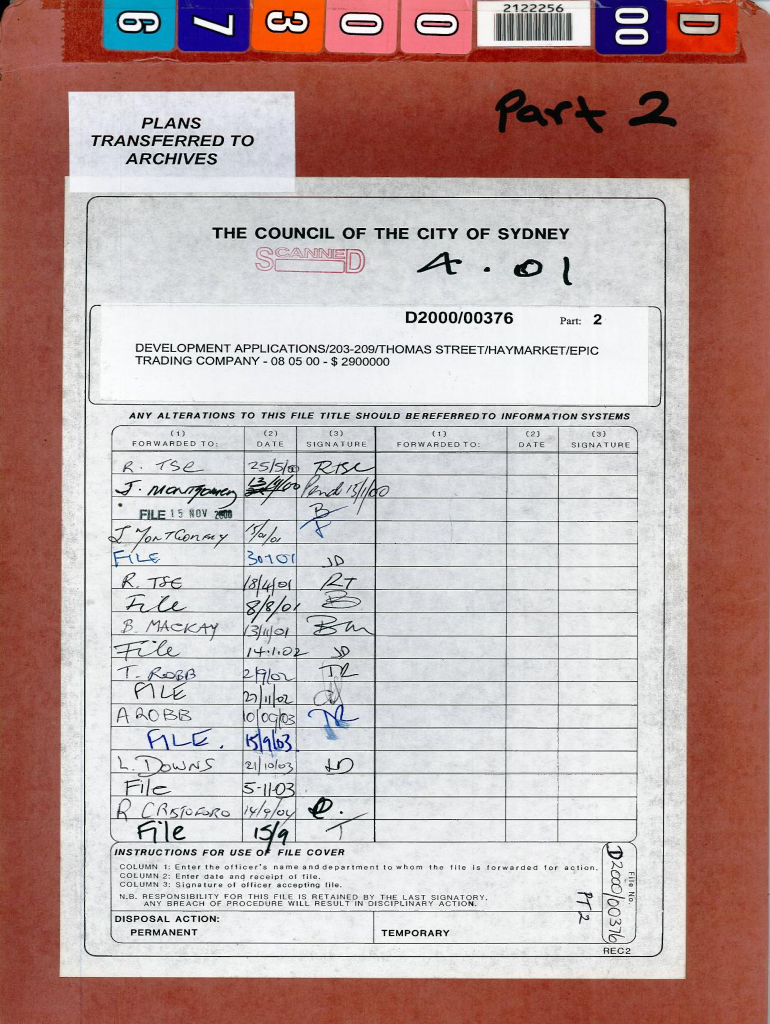 6 7 3 0 0 2122256 00 D
Part 2
PLANS
TRANSFERRED TO
ARCHIVES
THE COUNCIL OF THE CITY OF SYDNEY
SCANNED
4.01
D2000/00376 Part: 2
DEVELOPMENT APPLICATIONS/203-209/THOMAS STREET/HAYMARKET/EPIC
TRADING COMPANY - 08 05 00 - $ 2900000
ANY ALTERATIONS TO THIS FILE TITLE SHOULD BE REFERRED TO INFORMATION SYSTEMS
(1) (2) (3) (1) (2) (3)
FORWARDED TO: DATE SIGNATURE FORWARDED TO: DATE SIGNATURE
R. TSE 25/5/00 RTSE
J. MONTGOMERY 13/9/00 13/1/00
FILE 15 NOV 2000 B
J MONTGOMERY 15/01/01
FILE 30701 JD
R. TSE 18/4/01 RT
File 8/8/01 B
B. MACKAY 13/11/01 Bm
File 14.1.02 JD
T. ROBB 2/9/02 TR
FILE 27/11/02
A ROBB 10/09/03 TR
FILE. 15/9/03
L. DOWNS 21/10/03 LD
File 5-11-03
R CRISTOFORO 14/9/04
File 15/9 T
INSTRUCTIONS FOR USE OF FILE COVER
COLUMN 1: Enter the officer's name and department to whom the file is forwarded for action.
COLUMN 2: Enter date and receipt of file.
COLUMN 3: Signature of officer accepting file.
N.B. RESPONSIBILITY FOR THIS FILE IS RETAINED BY THE LAST SIGNATORY.
ANY BREACH OF PROCEDURE WILL RESULT IN DISCIPLINARY ACTION.
PT 2
D2000/00376
File No.
DISPOSAL ACTION:
PERMANENT TEMPORARY
REC2